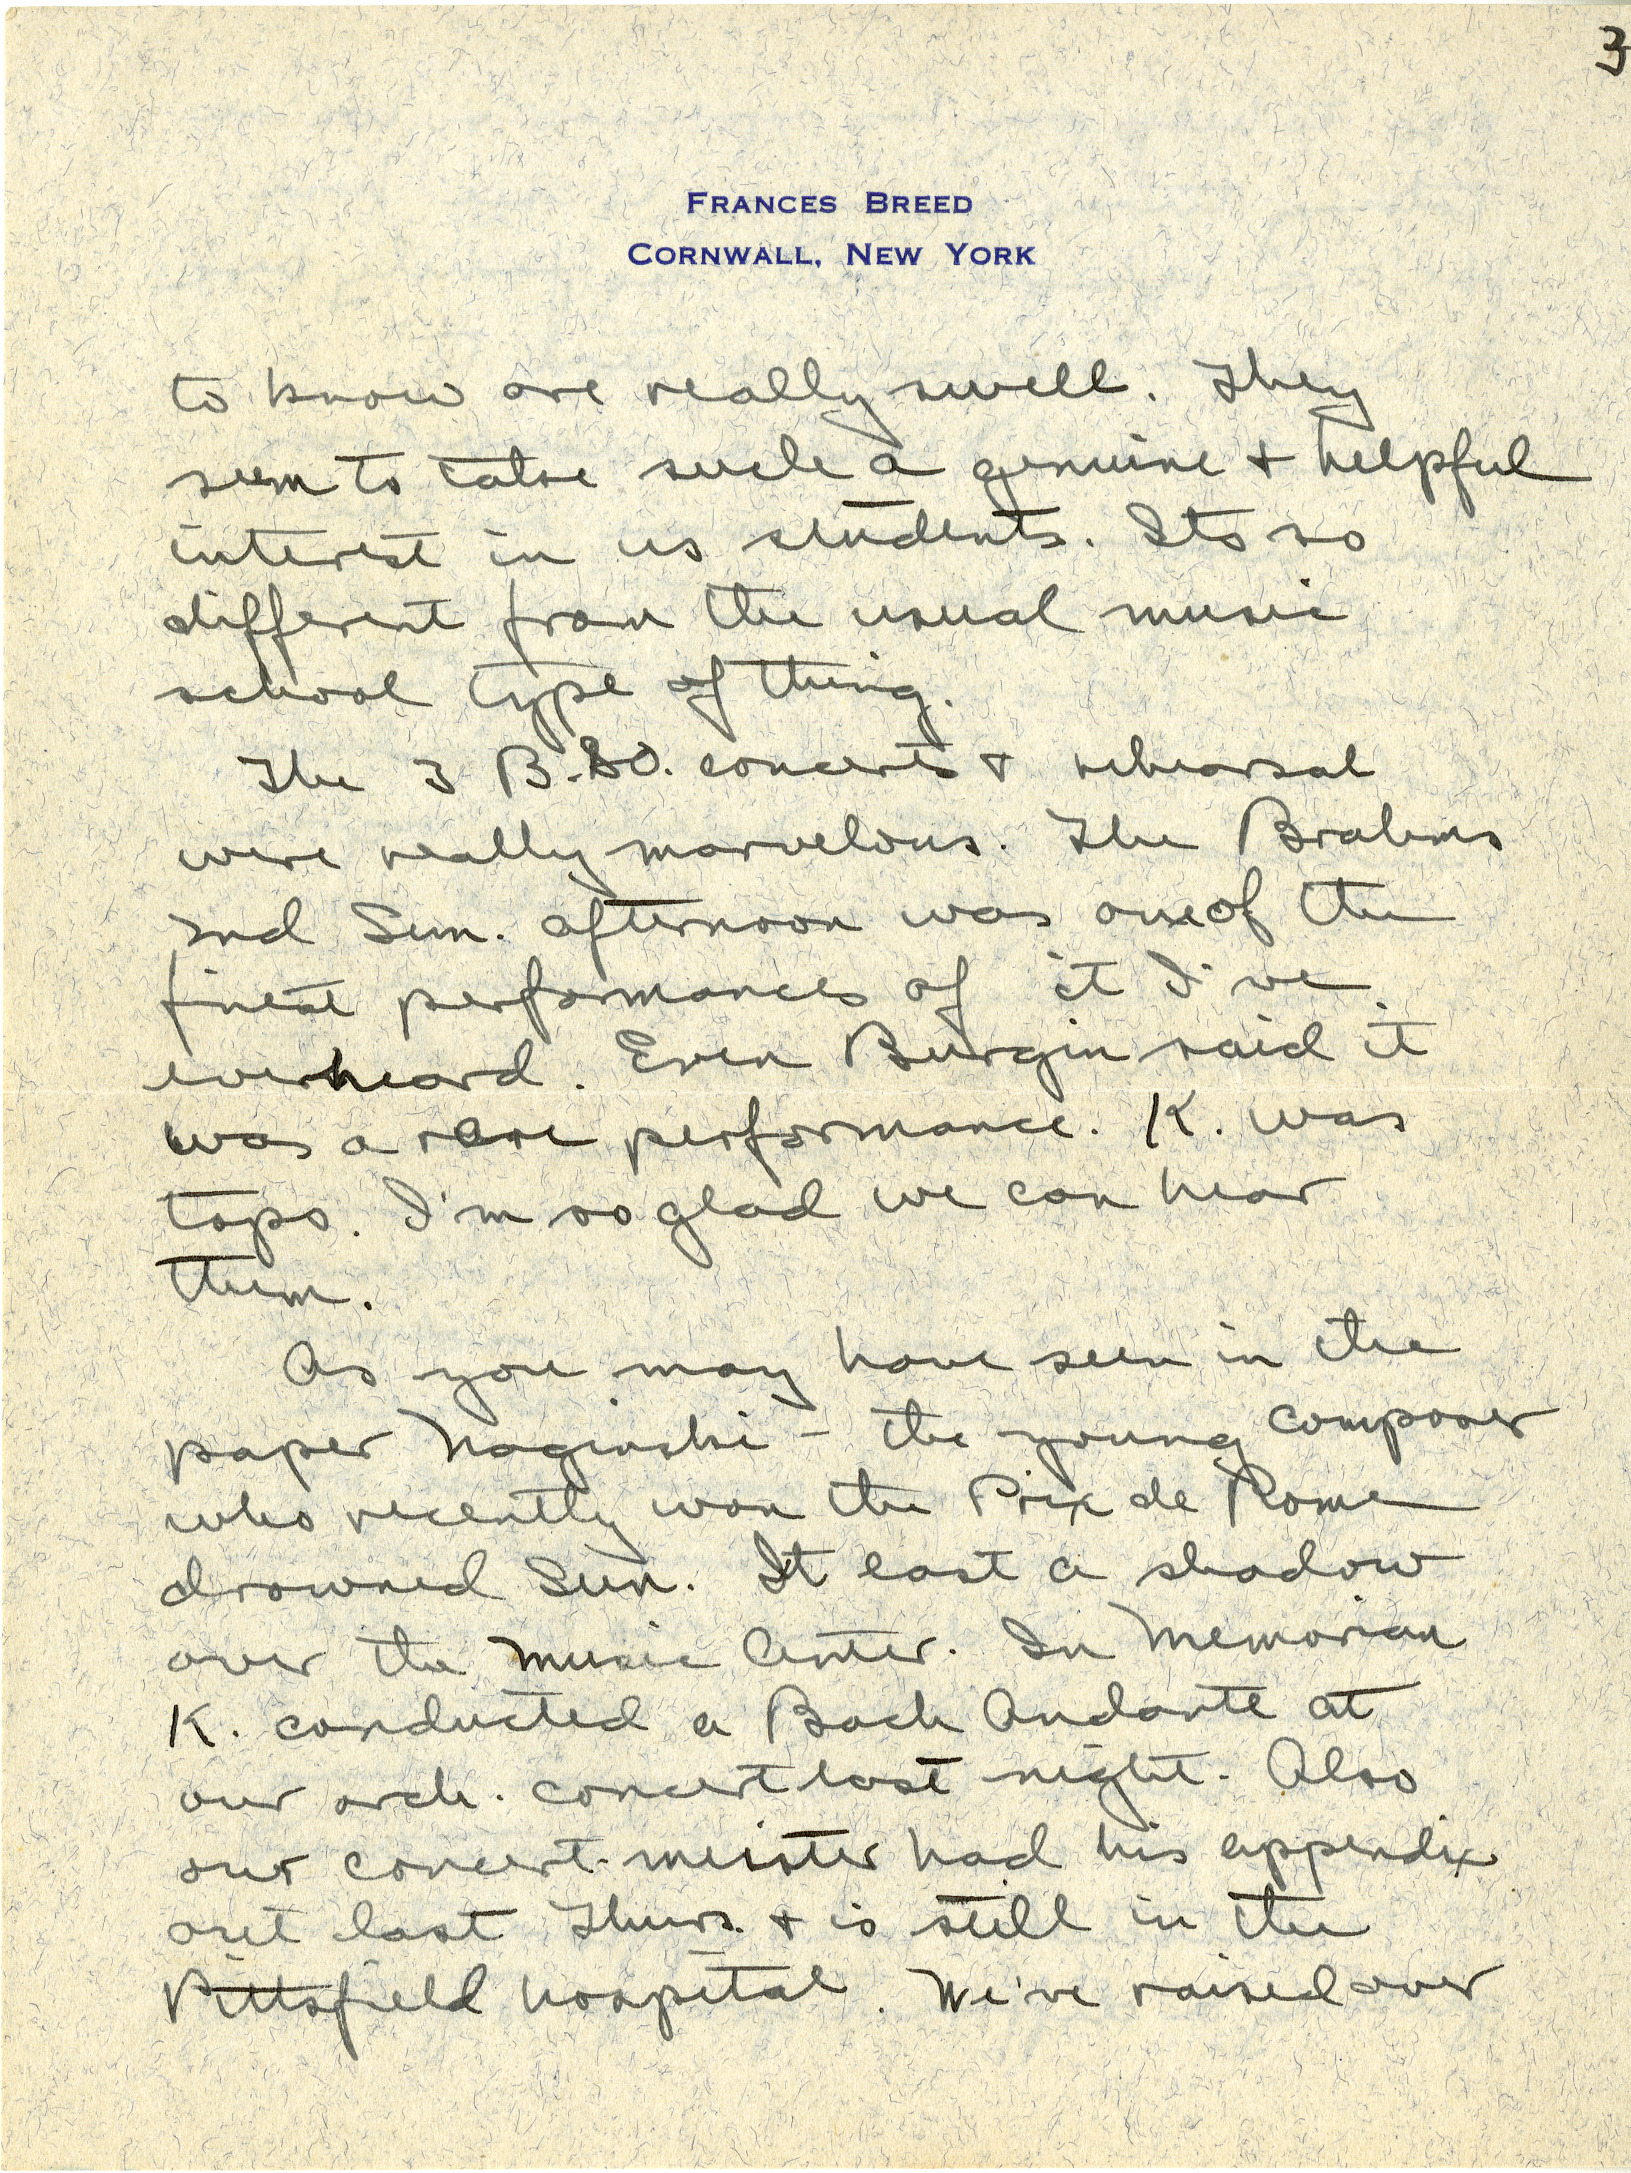 3
FRANCES BREED
CORNWALL, NEW YORK
to know are really swell. They
seem to take such a genuine + helpful
interest in us students. Its so
different from the usual music
school type of thing.
The 3 B.S.O. concerts + rehearsal
were really marvelous. The Brahms
2nd Sun. afternoon was one of the
finest performances of it I've
ever heard. Even Burgin said it
was a rare performance. K. was
tops. I'm so glad we can hear
them.
As you may have seen in the
paper Naginski - the young composer
who recently won the Prix de Rome
drowned Sun. It cast a shadow
over the Music Center. In Memoriam
K. conducted a Bach Andante at
our orch. concert last night. Also
our concert-meister had his appendix
out last Thurs. + is still in the
Pittsfield hospital. We've raised over